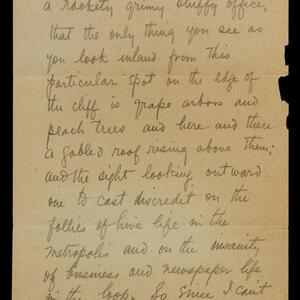 a rackety grimy stuffy office,
that the only thing you see as
you look inland from this
particular spot on the edge of
the cliff is grape arbors and
peach trees and here and there
a gabled roof rising above them;
and the sight looking outward
one to cast discredit on the
follies of hive life in the
metropolis and on the insanity
of business and newspaper life
in the loop. So since I can't